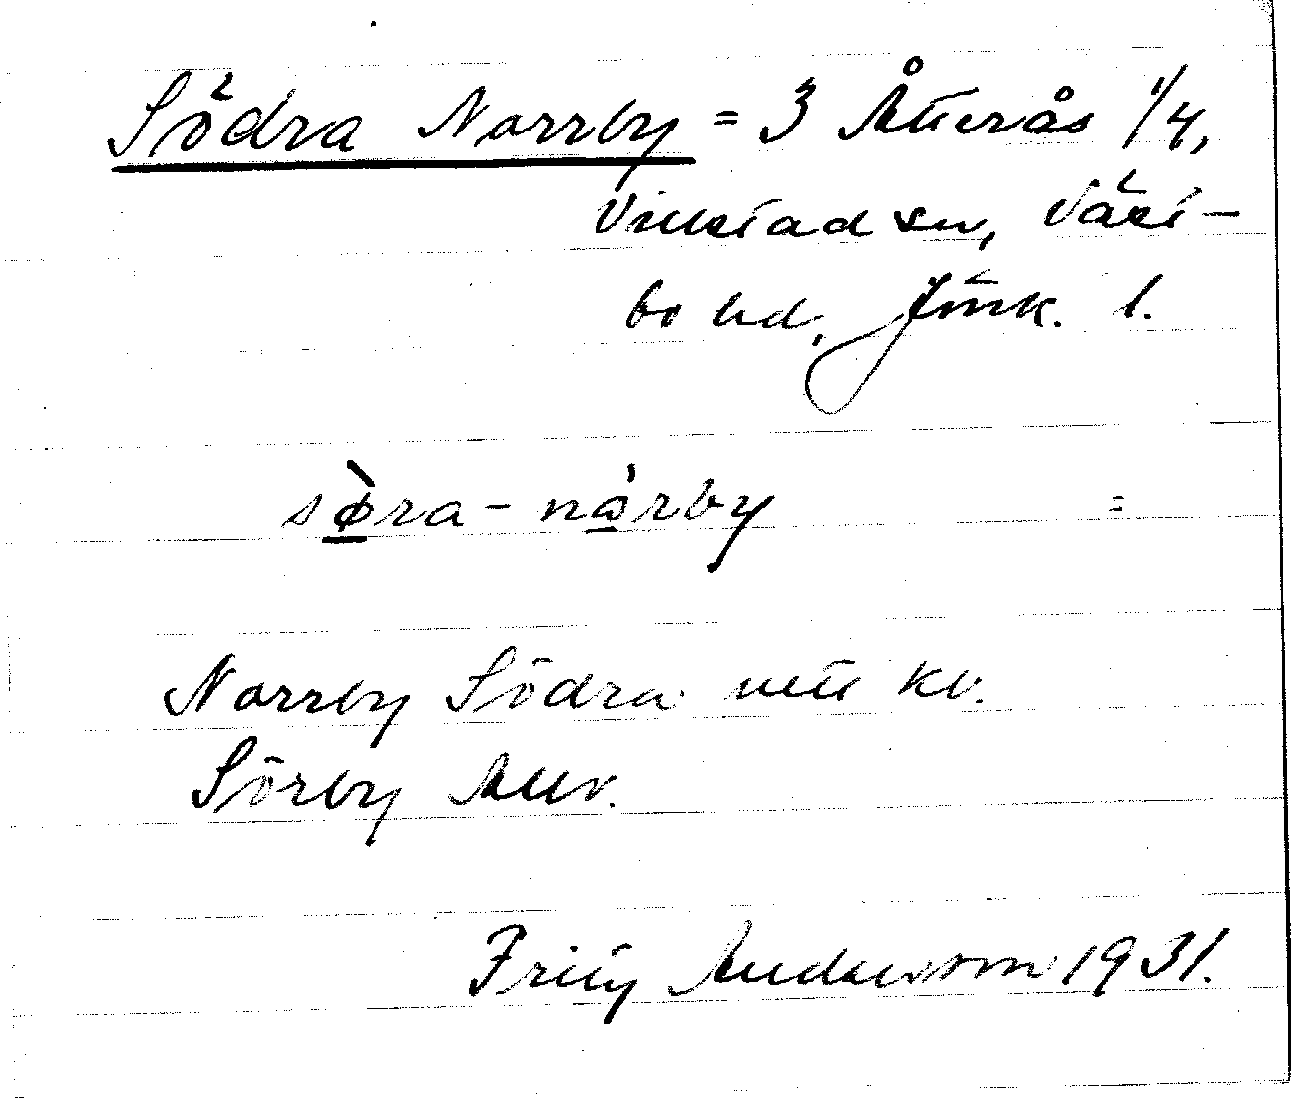 Södra Norrby = 3 Átterås 1/4,
Villstad sn, Väst-
bo hd, Jönk. l.
sø̀ra-nårby =
Norrby Södra utt kv.
Sörby Allv.
Fritz Anderson 1931.